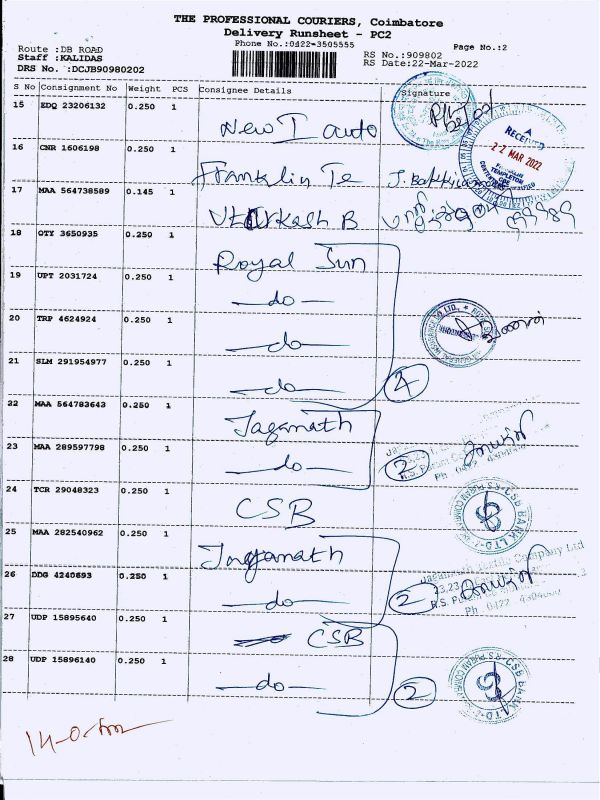 THE PROFESSIONAL COURIERS, Coimbatore
Delivery Runsheet - PC2
Phone No.:0422-3505555
Page No.:2
Route :DB ROAD
Staff :KALIDAS
DRS No. :DCJB90980202
RS No.:909802
RS Date:22-Mar-2022
S No Consignment No Weight PCS Consignee Details Signature
15 EDQ 23206132 0.250 1 New I auto
RECEIVED
22 MAR 2022
16 CNR 1606198 0.250 1 Franklin Te
17 MAA 564738589 0.145 1 B
18 OTY 3650935 0.250 1 Royal Sun
19 UPT 2031724 0.250 1 —do—
20 TRP 4624924 0.250 1 —do—
21 SLM 291954977 0.250 1 —do— 4
22 MAA 564783643 0.250 1 Jaganath
23 MAA 289597798 0.250 1 —do— 2
24 TCR 29048323 0.250 1 CSB
CSB BANK LTD
25 MAA 282540962 0.250 1 Jaganath
26 DDG 4240693 0.250 1 —do— 2
27 UDP 15895640 0.250 1 CSB
28 UDP 15896140 0.250 1 —do— 2
CSB BANK LTD